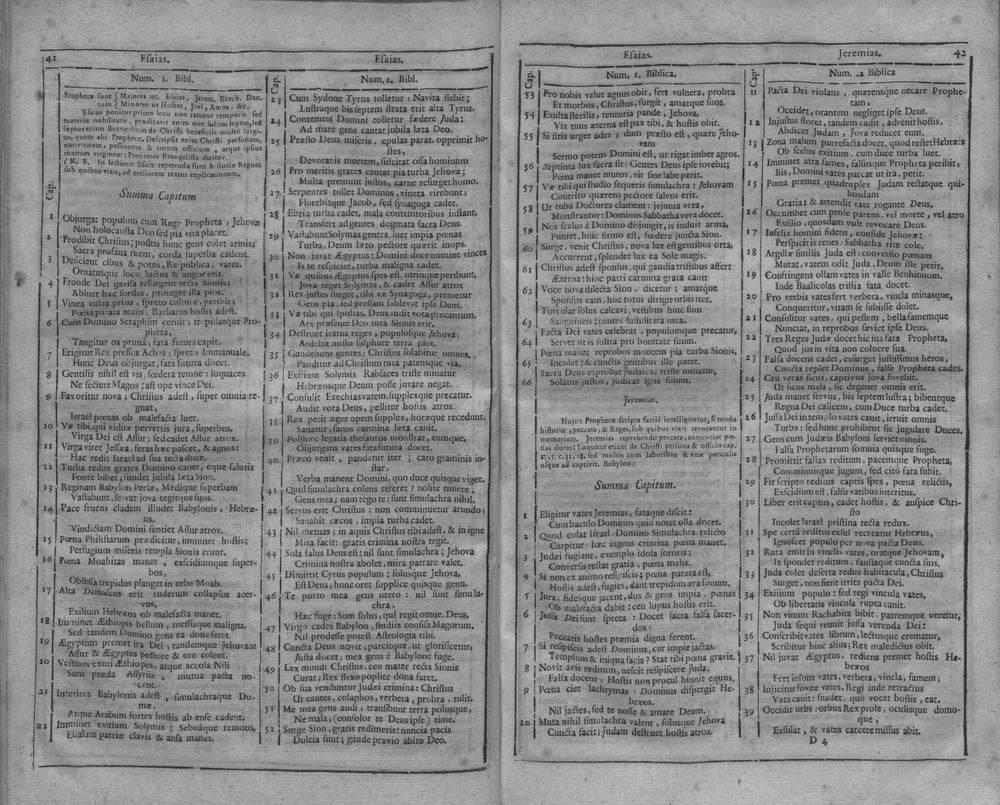 41
Esaias.
Esaias.
Num. 1. Bibl.
Prophetæ sunt Majores ut. Esaias, Jerem, Ezech. Dan.
tum Minores ut Hoseas, Joel, Amos, &c.
Esaias ponitur primo loco non ratione temporis sed
materiæ nobilitatis, prædicare enim non solum legem, sed
sæpius etiam Evangelium de Christi beneficiis multo largi-
us, quam alii Prophetæ. Describit enim Christi personam,
nativitatem, passionem & totum officium, atque ipsius
matrem virginem: Propterea Evangelista dicitur.
(N. B. In lectione Esaiæ repetendæ sunt historiæ Regum
sub quibus vixit, ad meliorem textus explicationem,
Cap.
Summa Capitum
1 Objurgat populum cum Rege Propheta; Jehovæ
Non holocausta Deo sed pia vita placet.
2 Prodibit Christus; positis hunc gens colet armis;
Sacra profana ruent, corda superba cadent.
3 Deficient cibus & potus, Respublica, vates,
Ornatusque loco luctus & angor erit.
4 Fronde Dei gavisa resurget tecta Sionis;
Abluet hæc sordes, proteget illa pios.
5 Vinea culta prius, spreto cultore, peribit;
Pœna parata malis, Barbarus hostis adest.
6 Cum Domino Seraphim cernit, trepidatque Pro-
pheta,
Tangitur os pruna, fata futura capit.
7 Erigitur Rex pressus Achas, spreto Immanuele,
Hunc Deus objurgat, fata futura docet.
8 Gentilis nihil est vis, fœdera tenne: loquaces
Ne sectere Magos; ast ope vince Dei.
9 Fax oritur nova; Christus adest, super omnia re-
gnat,
Israel pœnas ob malefacta luet.
10 Væ tibi, qui viduæ pervertis jura, superbus,
Virga Dei est Assur; sed cadet Assur atrox.
11 Virga viret Jessæa. feras hæc pascet, & agnos:
Hac redit Israel ad sua tecta duce.
12 Turba redux grates Domino canet, eque salutis
Fonte bibet; fundet jubila læta Sion.
13 Reginam Babylon Persæ, Medique superbam
Vastabunt, servat jova tegitque suos.
14 Pace fruens cladem illudet Babylonis, Hebræ-
us,
Vindictam Domini sentiet Assur atrox.
15 Pœna Philistæum prædicitur, imminet hostis;
Perfugium miseris templa Sionis erunt.
16 Pœna Moabitas manet, excidiumque super-
bos,
Obsessa trepidus planget in urbe Moab.
17 Alta Damascus erit ruderum collapsus acer-
vus,
Exilium Hebræos ob malefacta manet.
18 Imminet Æthiopis bellum, messisque maligna.
Sed tandem Domino gens ea dona feret.
19 Ægyptum premet ira Dei, tandemque Jehovam
Assur & Ægyptus pectore & ore colent.
20 Vestibus exuti Æthiopes, atque accola Nili
Sunt præda Assyriis, mutua pacta no-
cent.
21 Interitus Babylonis adest, simulachraque Du-
mæ,
Atque Arabum fortes hostis ab ense cadent.
22 Imminet exitium Solymis; Sebnaque remoto,
Eliakim patriæ clavis & ansa manet.
Cap.
Num, 2. Bibl.
23 Cum Sydone Tyrus tolletur: Navita flebit;
Lustraque bis septem strata erit alta Tyrus.
24 Contemtoi Domini tolletur fœdere Juda:
Ad mare gens cantat jubila læta Deo.
25 Præsto Deus miseris, epulas parat. opprimit ho-
stes,
Devorat is mortem, suscitat ossa hominum
26 Pro meritis grates cantat pia turba Jehovæ;
Multa premunt justos, carne resurget homo.
27 Serpentes tollet Dominus, vineta virebunt;
Horebitque Jacob, sed synagoga cadet.
28 Ebria turba cadet, mala contemtoribus instant,
Transfert ad gentes dogmata sacra Deus.
29 Vastabunt Solymas gentes, luet impia pœnas
Turba. Deum læto pectore quærit inops.
30 Non juvat Ægyptus: Domini duce numine vinces
Is te respiciet, turba maligna cadet.
31 Væ quibus Ægyptus spes est, utrinque peribunt,
Jova teget Solymas, & cadet Assur atrox
32 Rex justus surget, tibi væ Synagoga, premetur
Gens pia, sed pressam sublevat ipse Deus.
33 Væ tibi qui spolias, Deus audit vota precantum,
Arx præsente Deo tuta Sionis erit.
34 Destruet iratus reges, populosque Jehova:
Ardebit misto sulphure terra pice.
35 Gaudebunt gentes; Christus solabitur omnes,
Panditur ad Christum tuta patemque via.
36 Exitium Solymis Rabsaces triste minatur
Hebræosque Deum posse juvare negat.
37 Consulit Ezechias vatem, supplexque precatur,
Audit vota Deus, pellitur hostis atrox.
38 Rex petit æger opem supplex, horæque recedunt,
Sanatur, sanus carmina læta canit.
39 Posthæc legatis thesauros monstrat, eumque,
Objurgans vates fata futura docet.
40 Præco venit, pandatur iter; caro graminis in-
star,
Verba manent Domini, quo duce quisque viget.
41 Quid simulachra colens referet? nolite timere,
Gens mea; nam tego te: sunt simulachra nihil.
42 Servus erit Christus: non comminuetur arundo;
Sanabit cæcos, impia turba cadet.
43 Nil metuas: in aquis Christus tibi adest, & in igne
Mira facit: gratis crimina nostra tegit.
44 Sola salus Deus est: nil sunt simulachra; Jehova
Crimina nostra abolet, mira patrare valet.
45 Dimittit Cyrus populum: solusque Jehova,
Est Deus, hunc oret supplice quisque genu.
46 Te porto mea gens utero: nil sunt simula-
chra,
Hæc fuge: Sum solus, qui regit omne, Deus,
47 Virgo cades Babylon, studiis confisa Magorum,
Nil prodesse potest Astrologia tibi.
48 Cuncta Deus novit; parcitque, ut glorificetur,
Justa docet: mea gens è Babylone fuge.
49 Lex mundi Christus: ceu mater tecta Sionis
Curat; Rex flexo poplite dona feret.
50 Ob sua venduntur Judæi crimina: Christus
Ut cautes, colaphos, verbera, probra, tulit.
51 Me mea gens audi, transibunt terra polusque,
Ne mala, (consolor te Deus ipse) time.
52 Surge Sion, gratis redimeris: nuncia pacis
Dulcia sunt; gaude pravio abito Deo.
Esaias.
Jeremias.
42
Cap.
Num. 1. Biblica.
53 Pro nobis velut agnus obit, fert vulnera, probra
Et morbos, Christus, surgit, amatque suos.
54 Exulta sterilis, tentoria pande, Jehova,
Vix tuus æterna est pax tibi, & hostis obit.
55 Si sitis urget ades; dum præsto est, quære Jeho-
vam
Sermo potens Domini est, ut rigat imber agros.
56 Septima lux sacra sit: Gentes Deus ipse tovebit;
Pœna manet mutos, vir sine labe perit.
57 Væ tibi qui studio sequeris simulachra: Jehovam
Contrito quærens pectore salvus erit.
58 Ut tuba Doctores clament: jejunia vera,
Monstrantur: Dominus Sabbatha vera docet.
59 Nos scelus à Domino disjungit, is induit arma,
Puniet, huic firmo est, fœdere juncta Sion.
60 Surge, venit Christus, nova lux est gentibus orta,
Accurrent, splendet lux ea Sole magis.
61 Christus adest sponsus, qui gaudia tristibus affert
Æterna: hinc patri carmina grata canit
62 Voce nova dilecta Sion, dicetur; amatque
Sponsus eam, huc totus dirigit orbis iter.
Torcular solus calcavi, vestibus hinc sum
63 Sanguineis: gentes sustulit ira mea.
Facta Dei vates celebrat, populumque precatur,
64 Servet ut is solita pro bonitate suum.
Pœna manet reprobos montem pia turba Sionis,
65 Incolet; & cunctis gentibus ille patet.
Sacra Deus reprobat Judaica, triste minatur,
66 Solatur justos, judicat igne solum.
Jeremias.
Hujus Prophetæ scripta facilè intelliguntur, si modo
historiæ, peccata, & Reges, sub quibus vixit revocantur in
memoriam. Jeremias reprehendit peccata, annunciat pœ-
nas duras: Loquitur etiam de Christi persona & officio cap.
sed multis cum laboribus & vitæ periculis
usque ad captivit. Babylon:
Summa Capitum.
1 Eligitur vates Jeremias, fataque discit:
Cum baculo Dominus quid notet olla docet.
2 Quod colat Israel. Domino Simulachra relicto
Carpitur: hæc ingens crimina pœna manet.
3 Judæi fugiant, exemplo idola sororis;
Conversis restat gratia, pœna malis.
4 Si non ex animo resipiscis; pœna parata est,
Hostis adest, fugies, dant trepidum arma sonum,
5 Jura, fidesque jacent, dux & gens impia, pœnas
Ob malefacta dabit: ceu lupus hostis erit.
6 Jussa Dei sunt spreta: Docet sacra falsa sacer-
dos:
Peccatis hostes præmia digna ferent.
7 Si resipiscis adest Dominus, cur impie jactas.
Templum & iniqua facis? Stat tibi pœna gravis.
8 Novit avis reditum, nescit resipiscere Juda,
Falsa docent; Hostis non procul hinnit equus.
9 Pœna ciet lachrymas: Dominus disperget He-
bræos.
Nil jactes, sed te nosse & amare Deum.
10 Muta nihil simulachra valent, solusque Jehova
Cuncta facit; Judam destruet hostis atrox.
Cap.
Num. .2 Biblica
11 Pacta Dei violans, quærensque necare Prophe-
tam,
Occidet, orantem negliget ipse Deus.
12 Injustus floret, tandem cadit, advenit hostis,
Abdicet Judam, Jova reducet eum.
13 Zona malum putrefacta docet, quod restet Hebræis
Ob scelus exitium, cum duce turba luet.
14 Imminet atra fames, falsusque Propheta peribit;
Bis, Domini vates parcat ut ira, petit.
15 Pœna premet quadruplex Judam restatque qui-
busdam
Gratia: & attendit vate rogante Deus.
16 Occumbet cum prole parens, vel morte, vel atro
Exilio, quosdam vult revocare Deus.
17 Infelix homini fidens, confide Jehovæ:
Perspicit is renes: Sabbatha rite cole.
18 Argillæ similis Juda est: converso pœnam
Mutat, vatem odit Juda, Deum ille petit.
19 Confringens ollam vates in valle Benhinnom,
Inde Baalicolas tristia fata docet.
20 Pro verbis vates fert verbera, vincla minasque,
Conqueritur, vitam se subiisse dolet.
21 Consulitur vates, qui pestem, bella famemque
Nunciat, in reprobos sæviet ipse Deus.
22 Tres Reges Judæ docet hic sua fata Propheta,
Quod jus in vita non coluere sua.
23 Falsa docens cadet, exsurget justissimus heros,
Cuncta replet Dominus, false Propheta cades.
24 Ceu veras ficus, captivos jova fovebit.
Ut ficus mala, sic degener omnis erit.
25 Juda manet servus, bis septem lustra; bibentque
Regna Dei calicem, cum Duce turba cadet.
26 Jussa Dei intem, lo vates canit, irruit omnis
Turba: sed hunc prohibent sic jugulare Duces.
27 Gens cum Judæis Babyloni serviet omnis.
Falsa Prophetarum somnia quisque fuge.
28 Promittit fallax reditum, pacemque Propheta,
Comminuitque jugum, sed cito fata subit.
29 Fit scripto reditus captis spes, pœna relictis,
Excidium est, falsis vatibus interitus.
30 Liber erit captus, cadet hostis, & auspice Chri-
sto
Incolet Israel pristina tecta redux.
31 Spe certa reditus exul recreatur Hebræus,
Ignoscet populo per nova pacta Deus.
32 Rura emit in vinclis vates, oratque Jehovam,
Is sponder reditum, faustaque cuncta suis.
33 Juda colet deserta redux habitacula, Christus
Surget, non sient irrita pacta Dei.
34 Exitium populo: sed regi vincula vates,
Ob libertatis vincula rupta canit.
35 Non vinum Rachabita bibit. patremque veretur,
Juda sequi renuit jussa verenda Dei:
36 Conscribit vates librum, lectusque crematur,
Scribitur hinc alius; Rex maledictus obit.
37 Nil juvat Ægyptus, rediens premet hostis He-
bræos
Fert insons vates, verbera, vincla, famem;
38 Injicitur foveæ vates, Regi inde retractus
Vata canit: suadet, quò vocet hostis, eat.
39 Occidit urbs; orbus Rex prole, oculisque domo-
que,
Exsulat, & vates carcere missus abit.
D 4